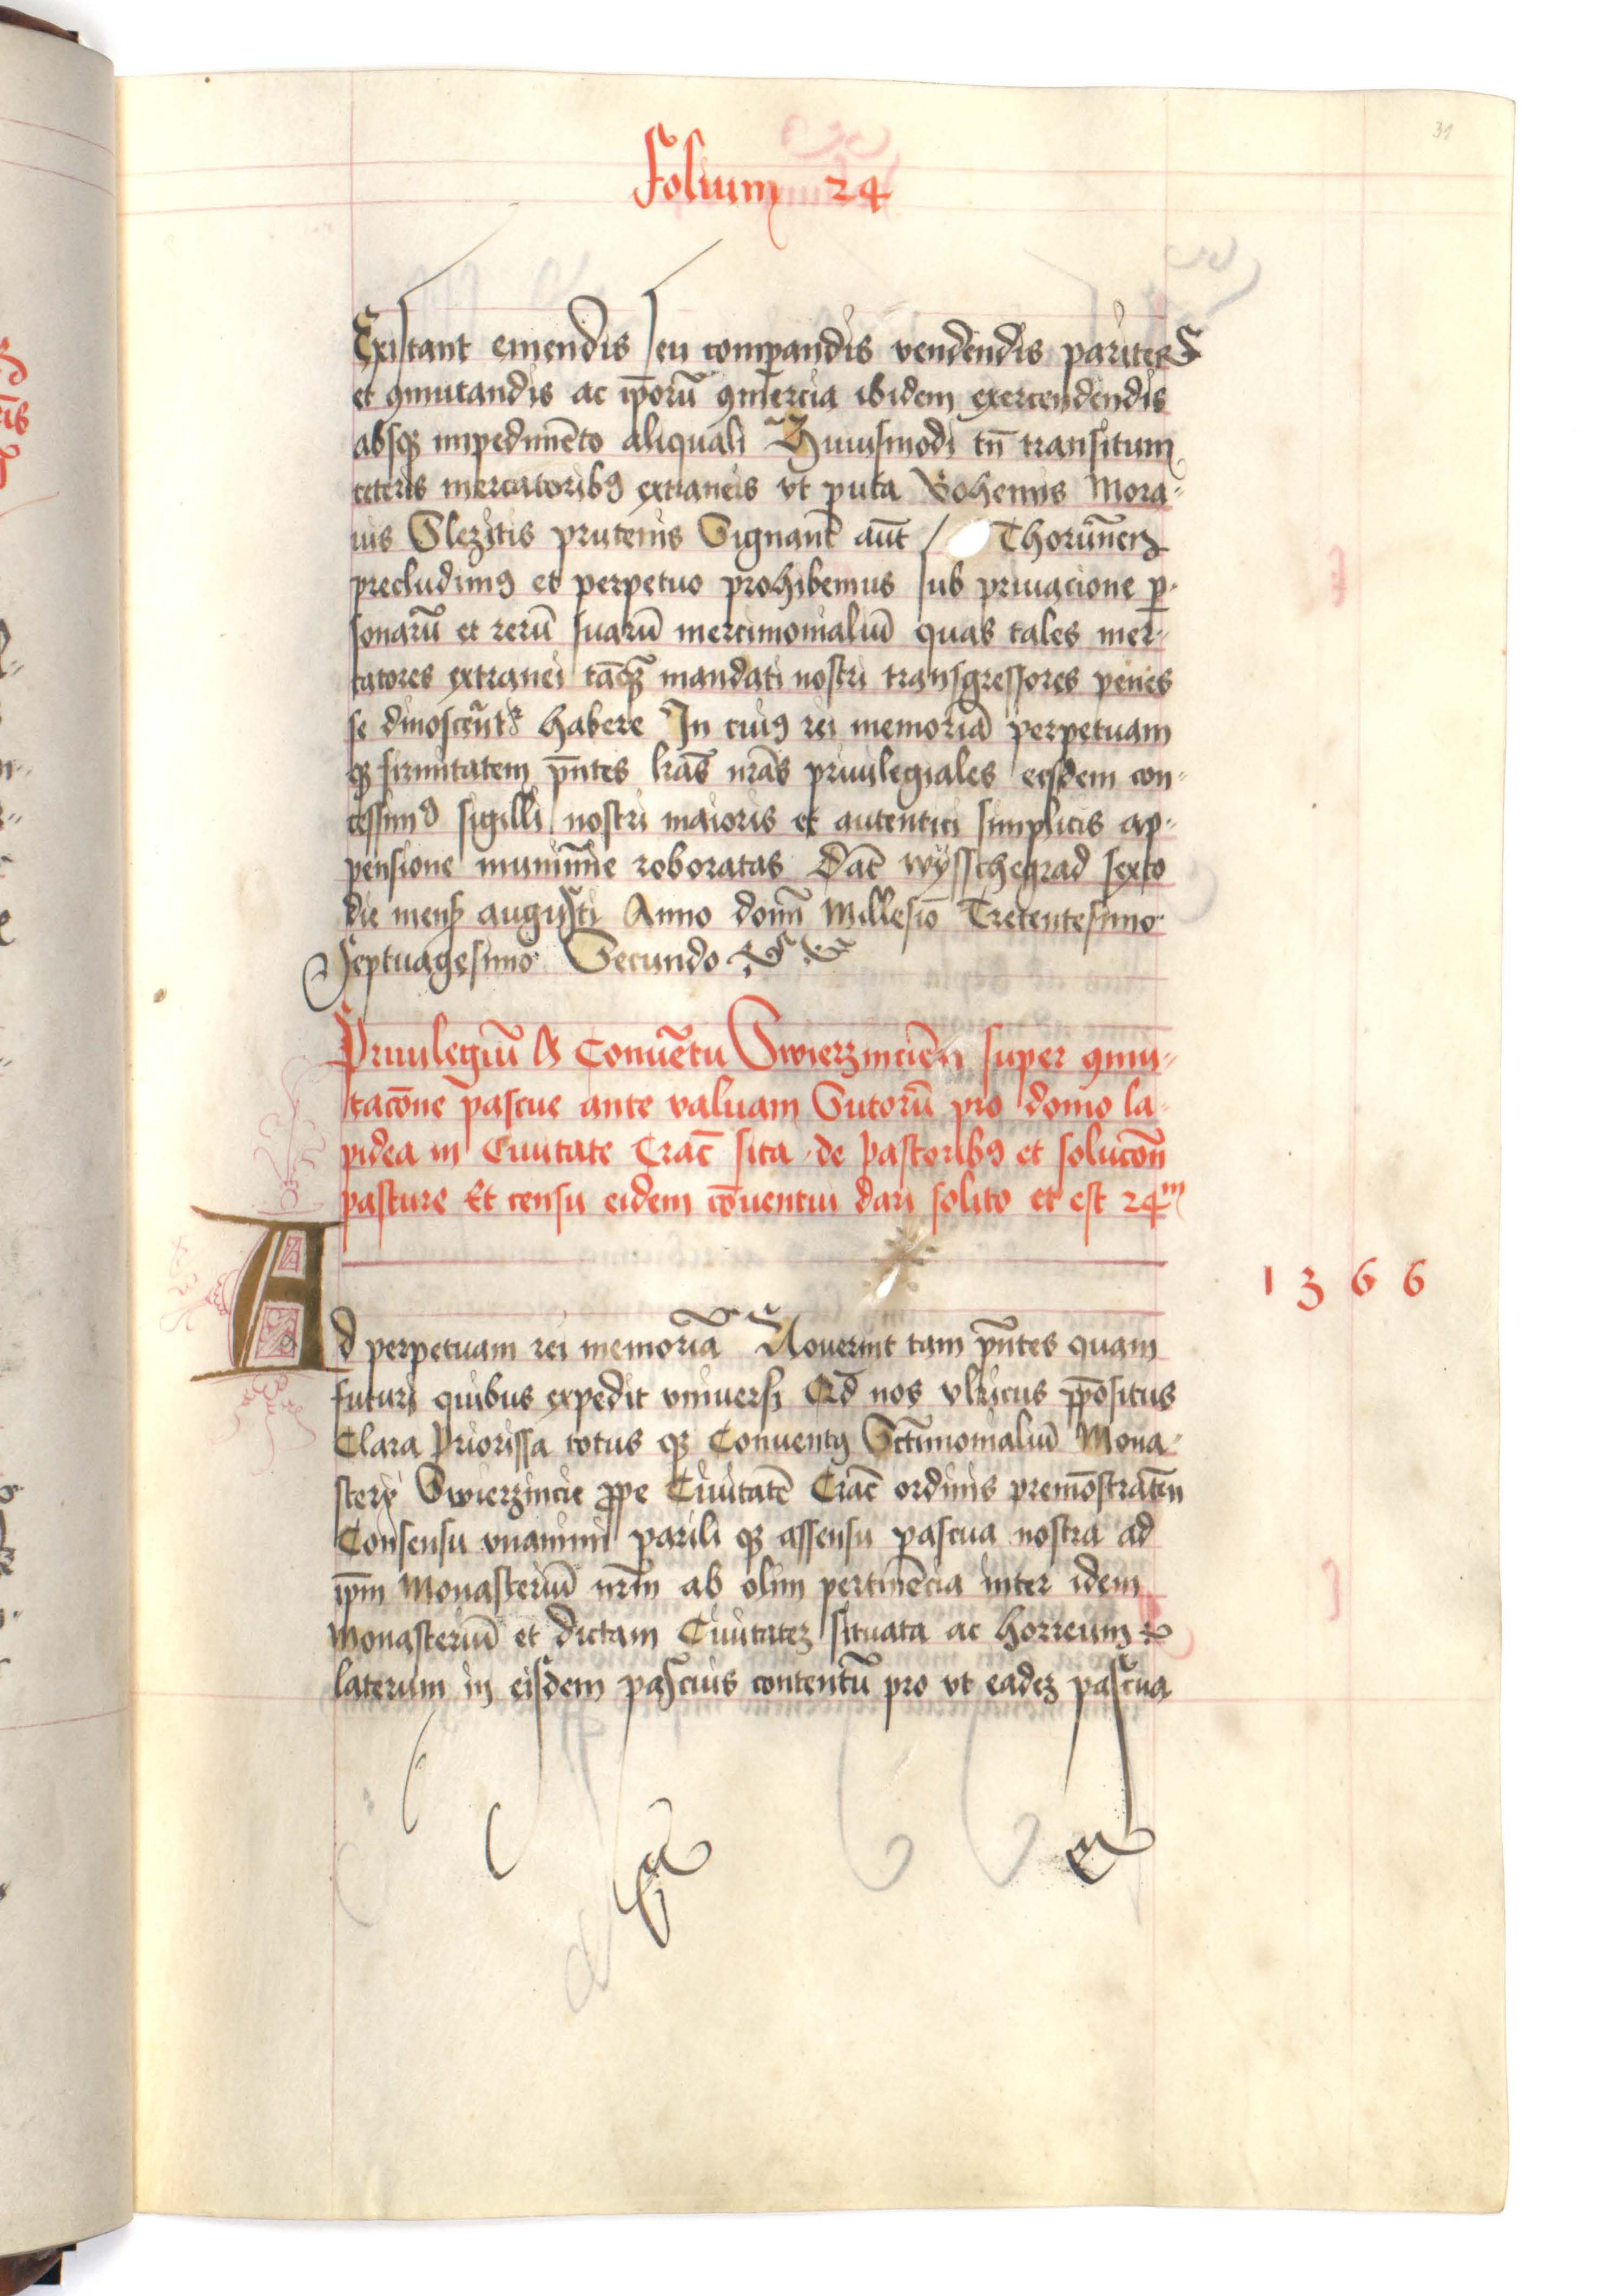 31
Folium 24
Existant emendis seu comparandis vendendis pariter
et ꝯmutandis ac ip̄orū ꝯmercia ibidem exercendendis
absqꝫ impedimēto aliquali Huiusmodi tn̄ transitum
ceteris mercatoribꝰ extraneis vt puta Bohemis Mora-
uis Slezitis prutenis Signant̄ aūt / Thorūnen̄
precludimꝰ et perpetuo prohibemus sub priuacione ꝑ-
sonarū et rerū suarū mercimonialiū quas tales mer-
catores extranei tāqꝫ mandati nostri transgressores penes
se dinoscūtr habere In cuiꝰ rei memoriā perpetuam
qꝫ firmitatem pn̄tes lr̄as nr̄as priuilegiales eisdem con-
cessimꝰ sigilli nostri maioris et autentici simplicis ap-
pensione munimīe roboratas Dat̄ wyschegrad sexto
die mens̄ augusti Anno domī Millesiō Trecentesimo
Septuagesimo Secundo
Priuilegiū A Conuētu Swierzincień super ꝯmu-
tacōne pascue ante valuam Sutorū pro domo la-
pidea in Ciuitate Crac̄ sita de pastoribꝰ et solucōn̄
pasture Et censu eidem cōuentui dari solito et est 24m
1366
Ad perpetuam rei memoriā Nouerint tam pn̄tes quam
futuri quibus expedit vniuersi Qd̄ nos vlricus p̄positus
Clara Priorissa totus qꝫ Conuentꝰ Sctīmonialiū Mona-
sterij Swierzincie ꝓpe Ciuitatē Crac̄ ordinis premōstratēn
Consensu vnanimi parili qꝫ assensu pascua nostra ad
ip̄m Monasteriū nr̄m ab olim pertinēcia inter idem
Monasteriū et dictam Ciuitatēꝫ situata ac horreum
laterum in eisdem pascuis contentū pro vt eadēꝫ pascua